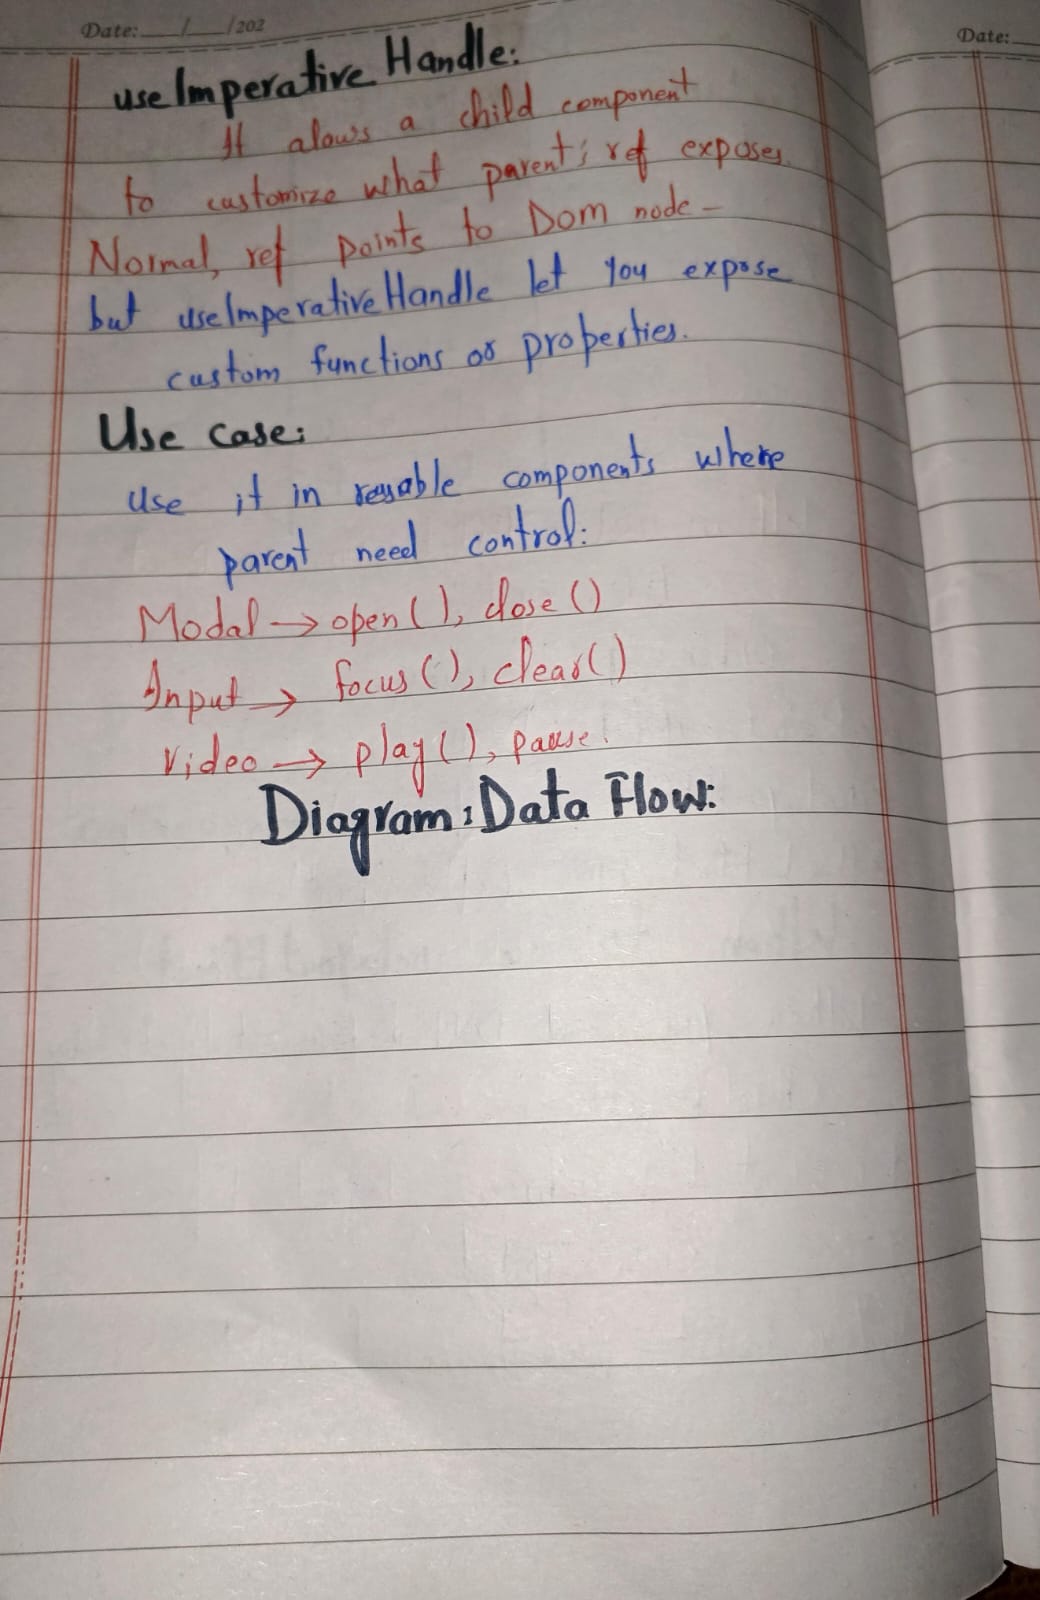 Date: / /202
Date:
useImperative Handle:
It alows a child component
to customize what parent's ref exposes.
Normal, ref points to Dom node -
but useImperativeHandle let you expose
custom functions or properties.
Use case:
Use it in reusable components where
parent need control:
Modal → open(), close()
Input → focus(), clear()
Video → play(), pause.
Diagram: Data Flow: